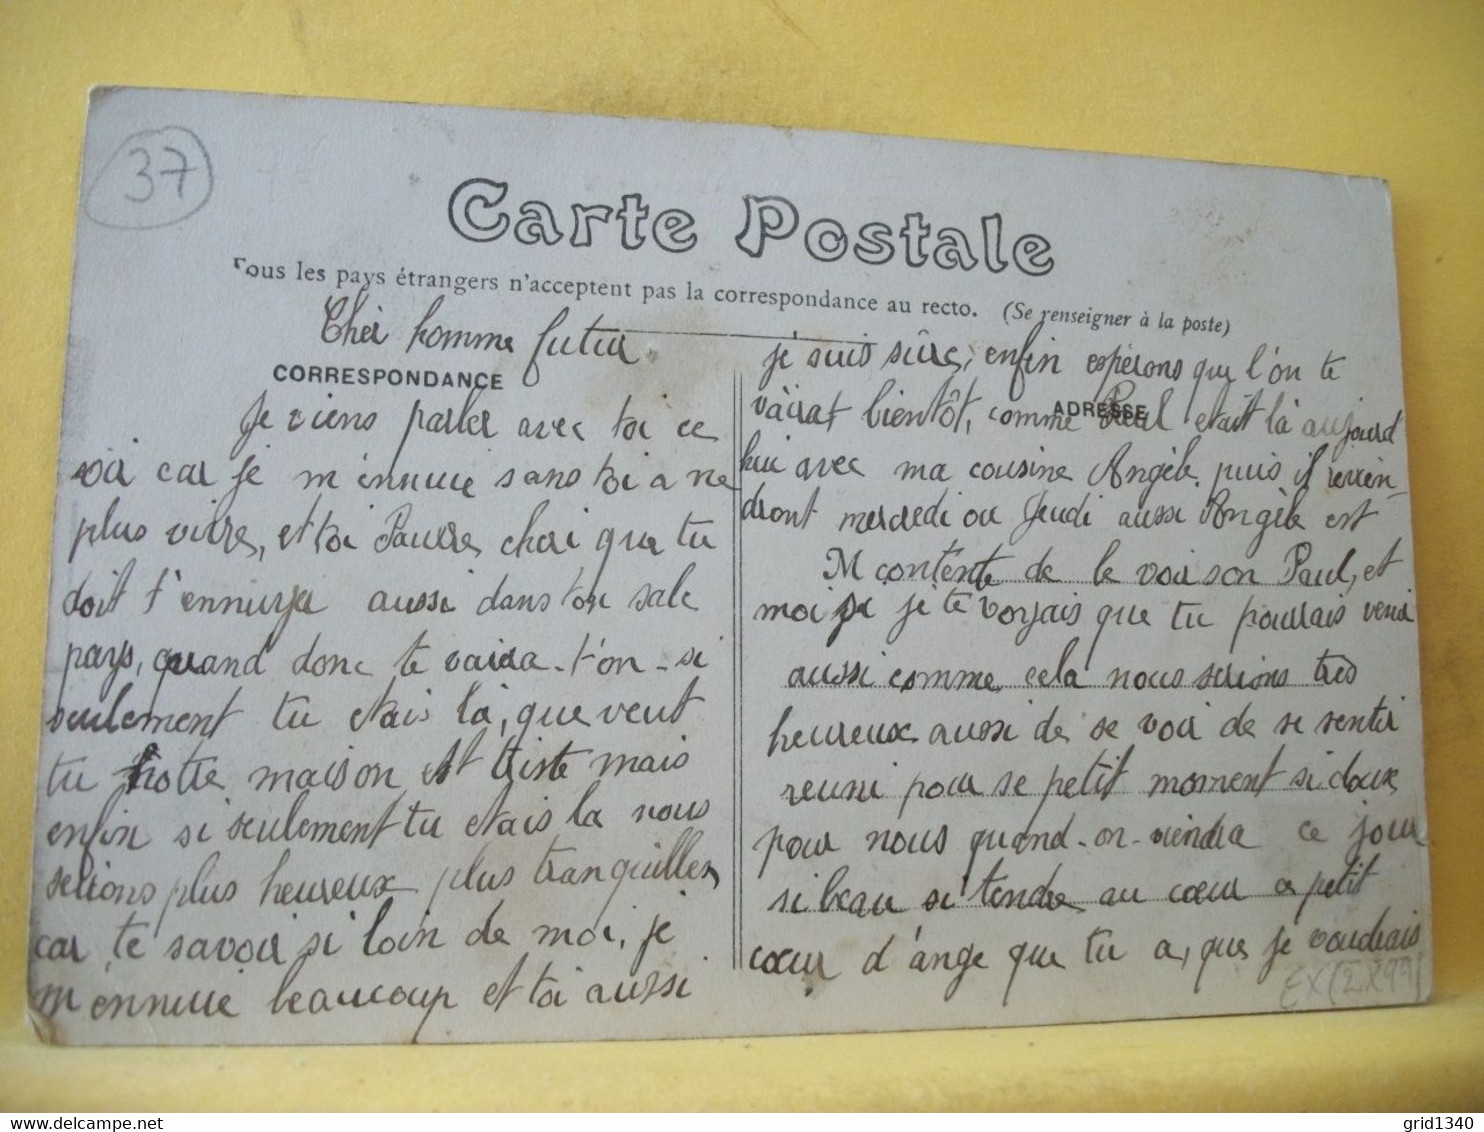 37
Carte Postale
Tous les pays étrangers n'acceptent pas la correspondance au recto. (Se renseigner à la poste)
Cher homme futur
CORRESPONDANCE
Je viens parler avec toi ce
soir car je m'ennuie sans toi a ne
plus vivre, et toi Pauvre cheri que tu
doit t'ennuyer aussi dans ton sale
pays, quand donc te vaira-t'on-si
seulement tu etais là, que veut
tu notre maison est triste mais
enfin si seulement tu etais la nous
serions plus heureux plus tranquilles
car te savoir si loin de moi, je
m'ennuie beaucoup et toi aussi
ADRESSE
je suis sûre, enfin espérons que l'on te
vairat bientôt, comme Paul etait là aujourd
hui avec ma cousine Angèle, puis il revien-
dront mercredi ou Jeudi aussi Angèle est
contente de le voir son Paul, et
moi si je te voyais que tu pourrais venir
aussi comme cela nous serions tres
heureux aussi de se voir de se sentir
reuni pour se petit moment si doux
pour nous quand-on-viendra ce jour
si beau si tendre au cœur a petit
cœur d'ange que tu a, que je voudrais
grid1340